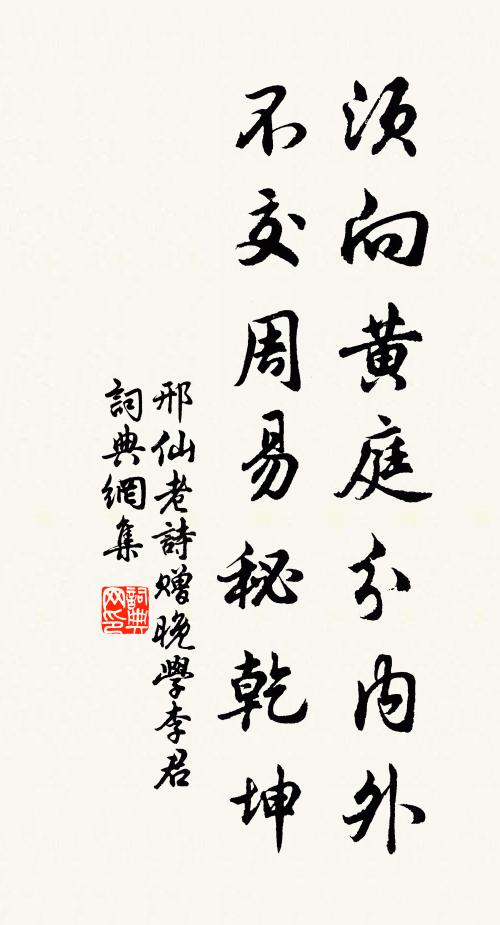 須向黃庭分內外
不交周易秘乾坤
邢仙老詩贈晚學李君
詞典網集
詞典網印